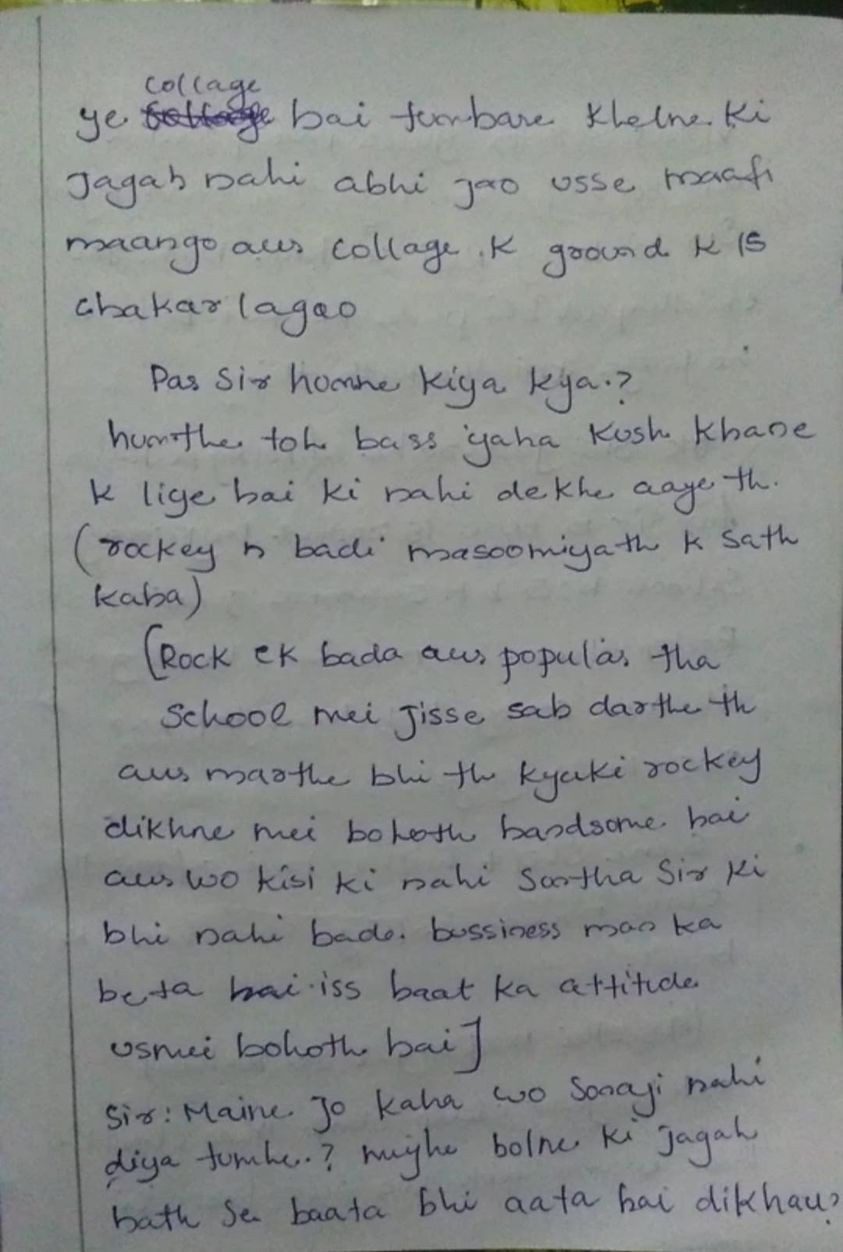 collage
ye hai tumhare khelne ki
Jagah nahi abhi jao usse maafi
maango aur collage k ground k 15
chakar lagao
Par Sir homne kiya kya.?
humthe toh bass yaha kush khane
k liye hai ki nahi dekhe aaye th.
(rockey n badi masoomiyath k sath
kaha)
[Rock ek bada aur popular tha
School mei Jisse sab darthe th
aur marthe bhi th kyuki rockey
dikhne mei bohoth handsome hai
aur wo kisi ki nahi Sontha Sir ki
bhi nahi bade. bussiness man ka
beta hai iss baat ka attitude
usmei bohoth hai]
Sir: Maine Jo kaha wo Sonayi nahi
diya tumhe.? mujhe bolne ki Jagah
hath se baata bhi aata hai dikhau?